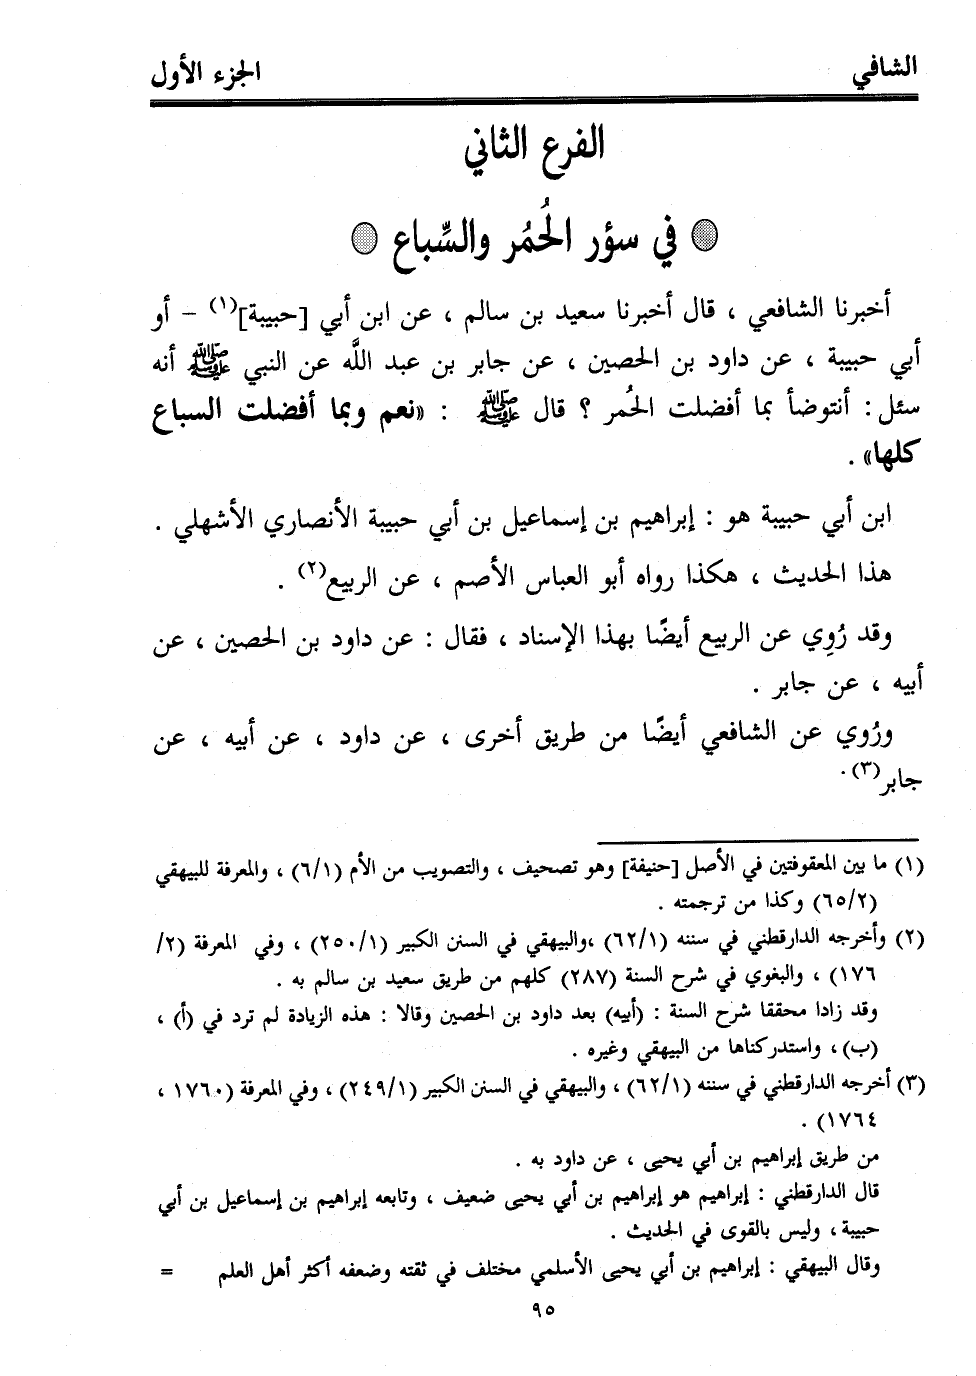 الشافي
الجزء الأول
الفرع الثاني
في سؤر الحُمُر والسِّباع
أخبرنا الشافعي ، قال أخبرنا سعيد بن سالم ، عن ابن أبي [حبيبة](١) – أو
أبي حبيبة ، عن داود بن الحصين ، عن جابر بن عبد اللَّه عن النبي ﷺ أنه
سئل : أنتوضأ بما أفضلت الحُمر ؟ قال ﷺ : «نعم وبما أفضلت السباع
كلها» .
ابن أبي حبيبة هو : إبراهيم بن إسماعيل بن أبي حبيبة الأنصاري الأشهلي .
هذا الحديث ، هكذا رواه أبو العباس الأصم ، عن الربيع(٢) .
وقد رُوِي عن الربيع أيضًا بهذا الإسناد ، فقال : عن داود بن الحصين ، عن
أبيه ، عن جابر .
ورُوي عن الشافعي أيضًا من طريق أخرى ، عن داود ، عن أبيه ، عن
جابر(٣).
(١) ما بين المعقوفتين في الأصل [حنيفة] وهو تصحيف ، والتصويب من الأم (٦/١) ، والمعرفة للبيهقي
(٦٥/٢) وكذا من ترجمته .
(٢) وأخرجه الدارقطني في سننه (٦٢/١) ،والبيهقي في السنن الكبير (٢٥٠/١) ، وفي المعرفة (٢/
١٧٦) ، والبغوي في شرح السنة (٢٨٧) كلهم من طريق سعيد بن سالم به .
وقد زادا محققا شرح السنة : (أبيه) بعد داود بن الحصين وقالا : هذه الزيادة لم ترد في (أ) ،
(ب) ، واستدركناها من البيهقي وغيره .
(٣) أخرجه الدارقطني في سننه (٦٢/١) ، والبيهقي في السنن الكبير (٢٤٩/١) ، وفي المعرفة (١٧٦٠ ،
١٧٦٤) .
من طريق إبراهيم بن أبي يحيى ، عن داود به .
قال الدارقطني : إبراهيم هو إبراهيم بن أبي يحيى ضعيف ، وتابعه إبراهيم بن إسماعيل بن أبي
حبيبة ، وليس بالقوى في الحديث .
وقال البيهقي : إبراهيم بن أبي يحيى الأسلمي مختلف في ثقته وضعفه أكثر أهل العلم =
٩٥